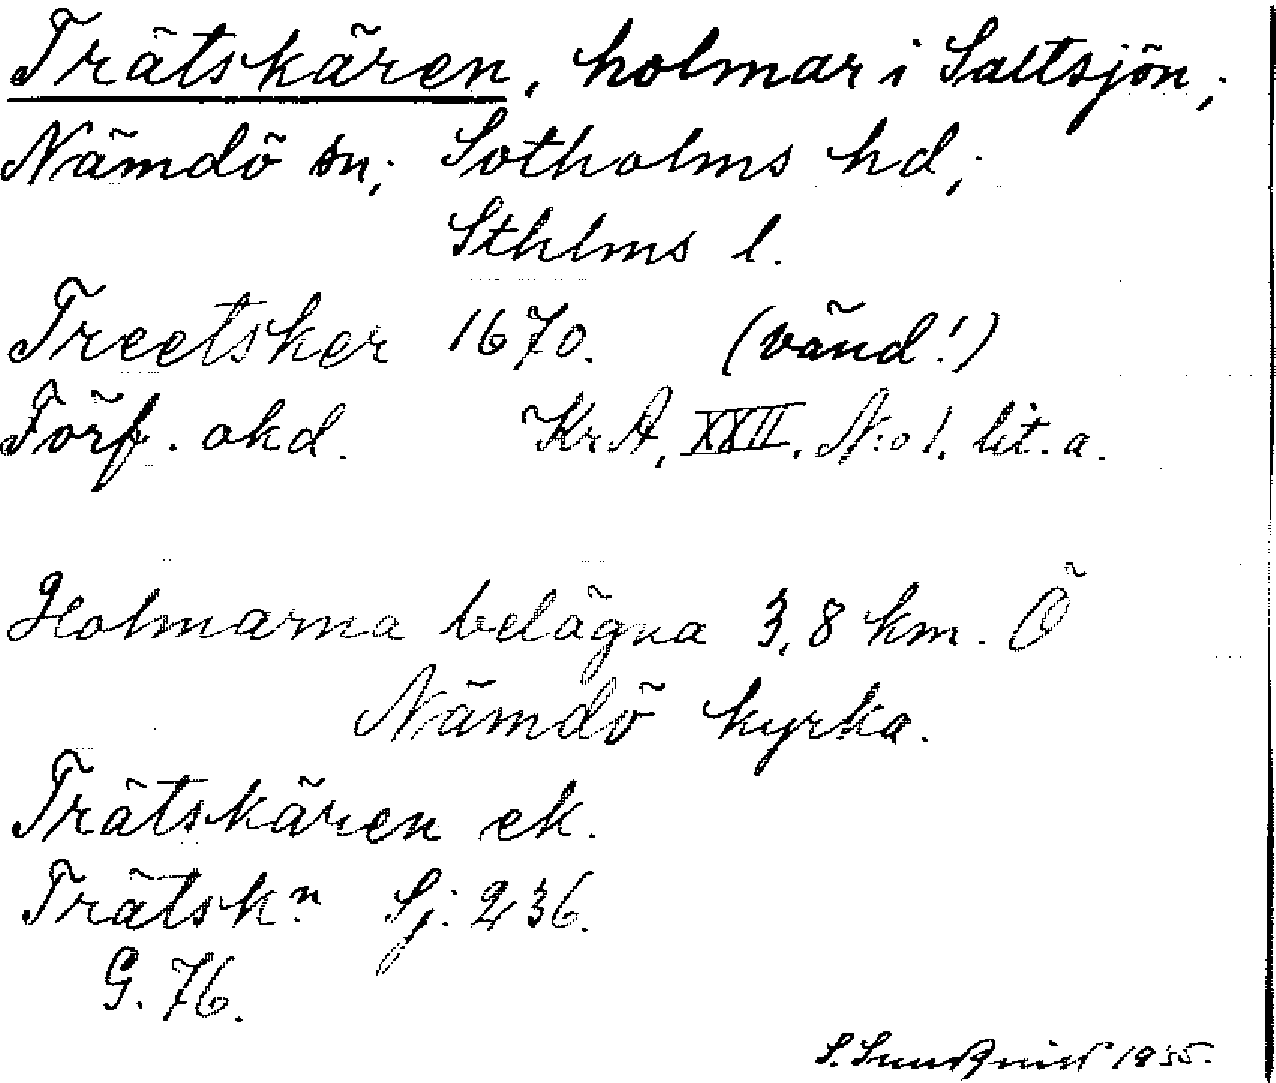 Trätskären, holmar i Saltsjön;
Nämdö sn; Sotholms hd;
Sthlms l.
Treetsker 1670. (vänd!)
Förf. okd. KrA, XXII. N:o 1. lit. a.
Holmarna belägna 3,8 km. Ö
Nämdö kyrka.
Trätskären ek.
Trätskn. Sj. 236.
G. 76.
S. Sundqvist 1935.